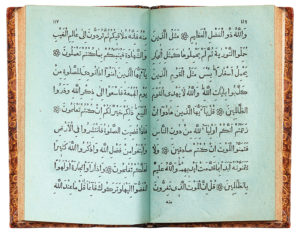 وَاللّٰهُ ذُو الْفَضْلِ الْعَظِيمِ ۞ مَثَلُ الَّذِينَ
حُمِّلُوا التَّوْرٰيةَ ثُمَّ لَمْ يَحْمِلُوهَا كَمَثَلِ الْحِمَارِ
يَحْمِلُ اَسْفَارًا بِئْسَ مَثَلُ الْقَوْمِ الَّذِينَ
كَذَّبُوا بِاٰيَاتِ اللّٰهِ وَاللّٰهُ لَا يَهْدِى الْقَوْمَ
الظَّالِمِينَ ۞ قُلْ يَا اَيُّهَا الَّذِينَ هَادُوا اِنْ
زَعَمْتُمْ اَنَّكُمْ اَوْلِيَاءُ لِلّٰهِ مِنْ دُونِ النَّاسِ
فَتَمَنَّوُا الْمَوْتَ اِنْ كُنْتُمْ صَادِقِينَ ۞ وَلَا
يَتَمَنَّوْنَهُ اَبَدًا بِمَا قَدَّمَتْ اَيْدِيهِمْ وَاللّٰهُ عَلِيمٌ
بِالظَّالِمِينَ ۞ قُلْ اِنَّ الْمَوْتَ الَّذِى تَفِرُّونَ
منه
مِنْهُ فَاِنَّهُ مُلَاقِيكُمْ ثُمَّ تُرَدُّونَ اِلٰى عَالِمِ الْغَيْبِ
وَالشَّهَادَةِ فَيُنَبِّئُكُمْ بِمَا كُنْتُمْ تَعْمَلُونَ ۞
يَا اَيُّهَا الَّذِينَ اٰمَنُوا اِذَا نُودِىَ لِلصَّلٰوةِ مِنْ
يَوْمِ الْجُمُعَةِ فَاسْعَوْا اِلٰى ذِكْرِ اللّٰهِ وَذَرُوا
الْبَيْعَ ذٰلِكُمْ خَيْرٌ لَكُمْ اِنْ كُنْتُمْ تَعْلَمُونَ ۞
فَاِذَا قُضِيَتِ الصَّلٰوةُ فَانْتَشِرُوا فِى الْاَرْضِ
وَابْتَغُوا مِنْ فَضْلِ اللّٰهِ وَاذْكُرُوا اللّٰهَ كَثِيرًا
لَعَلَّكُمْ تُفْلِحُونَ ۞ وَاِذَا رَاَوْا تِجَارَةً اَوْ لَهْوًا
انْفَضُّوا اِلَيْهَا وَتَرَكُوكَ قَائِمًا قُلْ مَا عِنْدَ اللّٰهِ